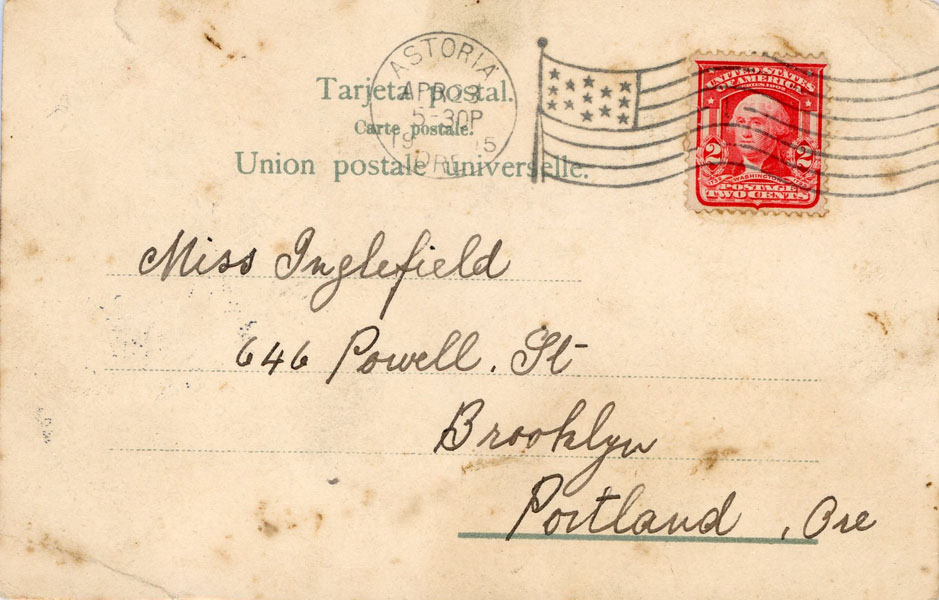 ASTORIA
APR 23
5-30P
19 5
ORE.
Tarjeta postal.
Carte postale.
Union postale universelle.
UNITED STATES
OF AMERICA
SERIES 1902
2 2
WASHINGTON
POSTAGE
TWO CENTS
Miss Inglefield
646 Powell. St
Brooklyn
Portland, Ore